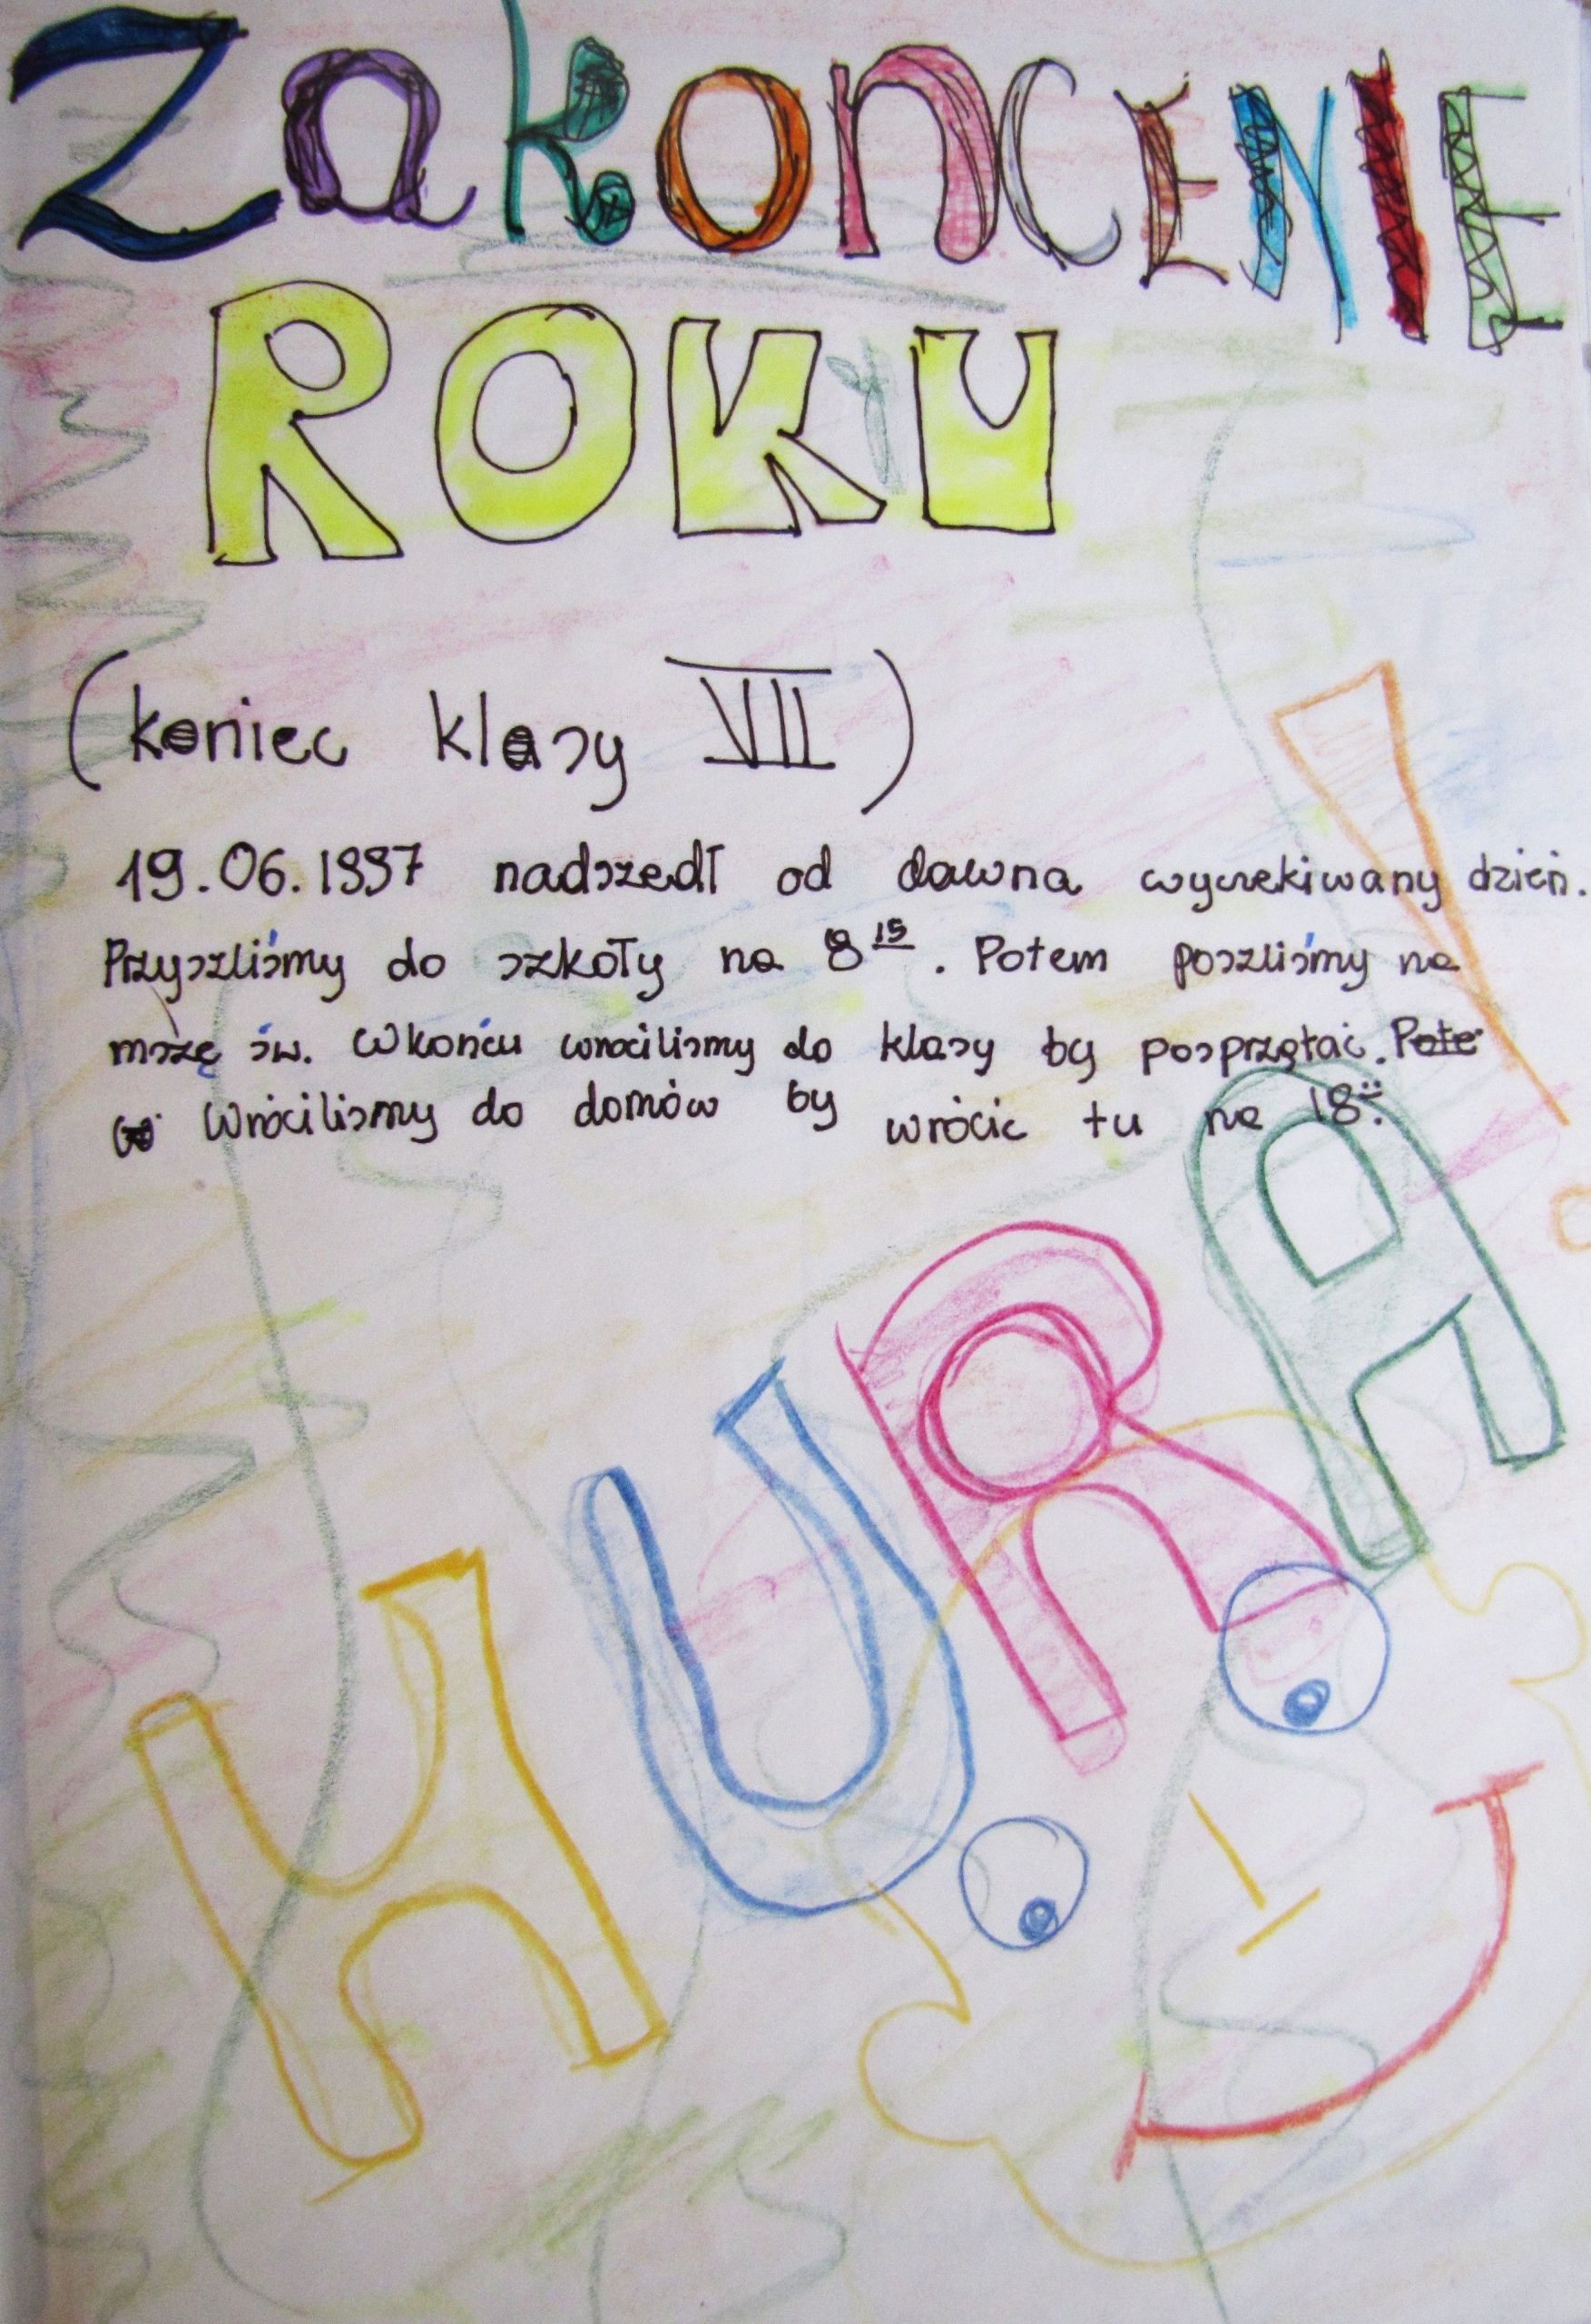 ZakonCENIE
ROKU
(koniec klasy VII)
19.06.1997 nadszedł od dawna wyczekiwany dzień.
Przyszliśmy do szkoły na 8 15. Potem poszliśmy na
mszę św. Wkońcu wrociliśmy do klasy by posprzątać. Pote
Wróciliśmy do domów by wrócic tu na 18:
HURA!